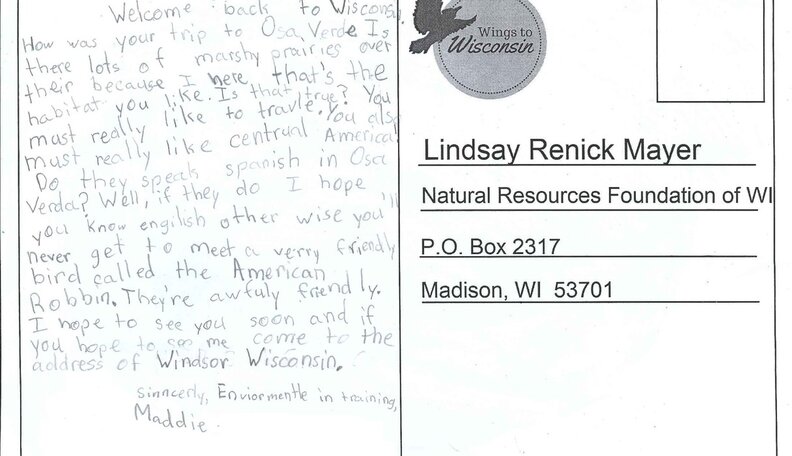 Welcome back to Wisconsin
How was your trip to Osa Verde Is
there lots of marshy prairies over
their because I here that's the
habitat you like. Is that true? You
must really like to travle. You also
must really like centrual America!
Do they speak spanish in Osa
Verda? Well, if they do I hope
you know engilish other wise you'll
never get to meet a verry friendly
bird called the American
Robbin. They're awfuly friendly.
I hope to see you soon and if
you hope to see me come to the
address of Windsor Wisconsin.
Sinncerly, Enviormentle in training,
Maddie.
Wings to
Wisconsin
Lindsay Renick Mayer
Natural Resources Foundation of WI
P.O. Box 2317
Madison, WI 53701